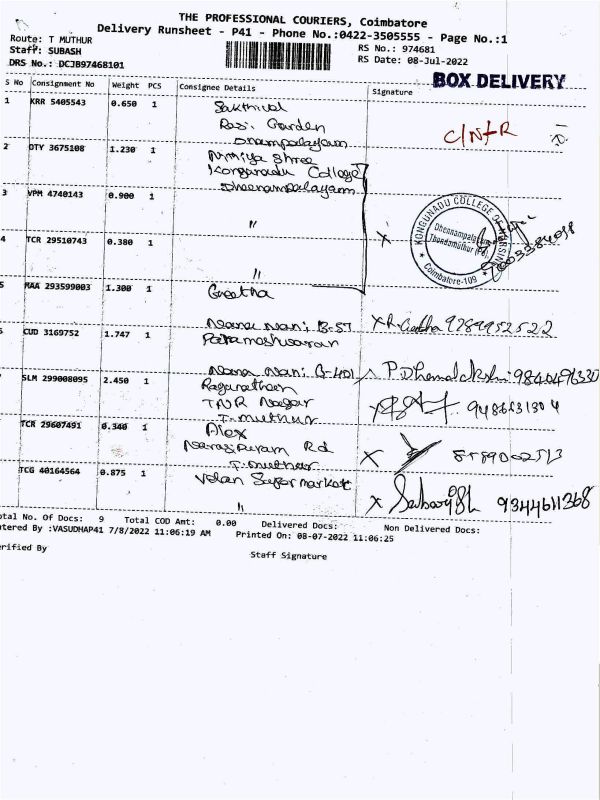 THE PROFESSIONAL COURIERS, Coimbatore
Delivery Runsheet - P41 - Phone No.:0422-3505555 - Page No.:1
Route: T MUTHUR
Staff: SUBASH
DRS No.: DCJB97468101
RS No.: 974681
RS Date: 08-Jul-2022
BOX DELIVERY
S No Consignment No Weight PCS Consignee Details Signature
1 KRR 5405543 0.650 1 Sakthival
Rasi Garden
Dnampalayam
C/N+R
2 DTY 3675108 1.230 1 Nithiya Shree
Konganadu College
Dheenampalayam
3 VPM 4740143 0.900 1 "
KONGUNADU COLLEGE OF NURSING
Dheenampalayam
Thondamuthur (PO)
Coimbatore-109
4 TCR 29510743 0.380 1 "
5 MAA 293599003 1.300 1 Geetha
Nana Nani B-57 X R. Geetha 9789952522
6 CUD 3169752 1.747 1 Parameshwaran
Nana Nani G-401 P. Dhanalakshmi 9840496330
SLM 299008095 2.450 1 Ragunathan
TNR Nagar
T. muthur
X 9486631304
TCR 29607491 0.340 1 Alex
Narasipuram Rd
T. muthur
X
TCG 40164564 0.875 1 Velan Super market
"
X 9344611368
otal No. Of Docs: 9 Total COD Amt: 0.00 Delivered Docs: Non Delivered Docs:
ntered By :VASUDHAP41 7/8/2022 11:06:19 AM Printed On: 08-07-2022 11:06:25
erified By
Staff Signature